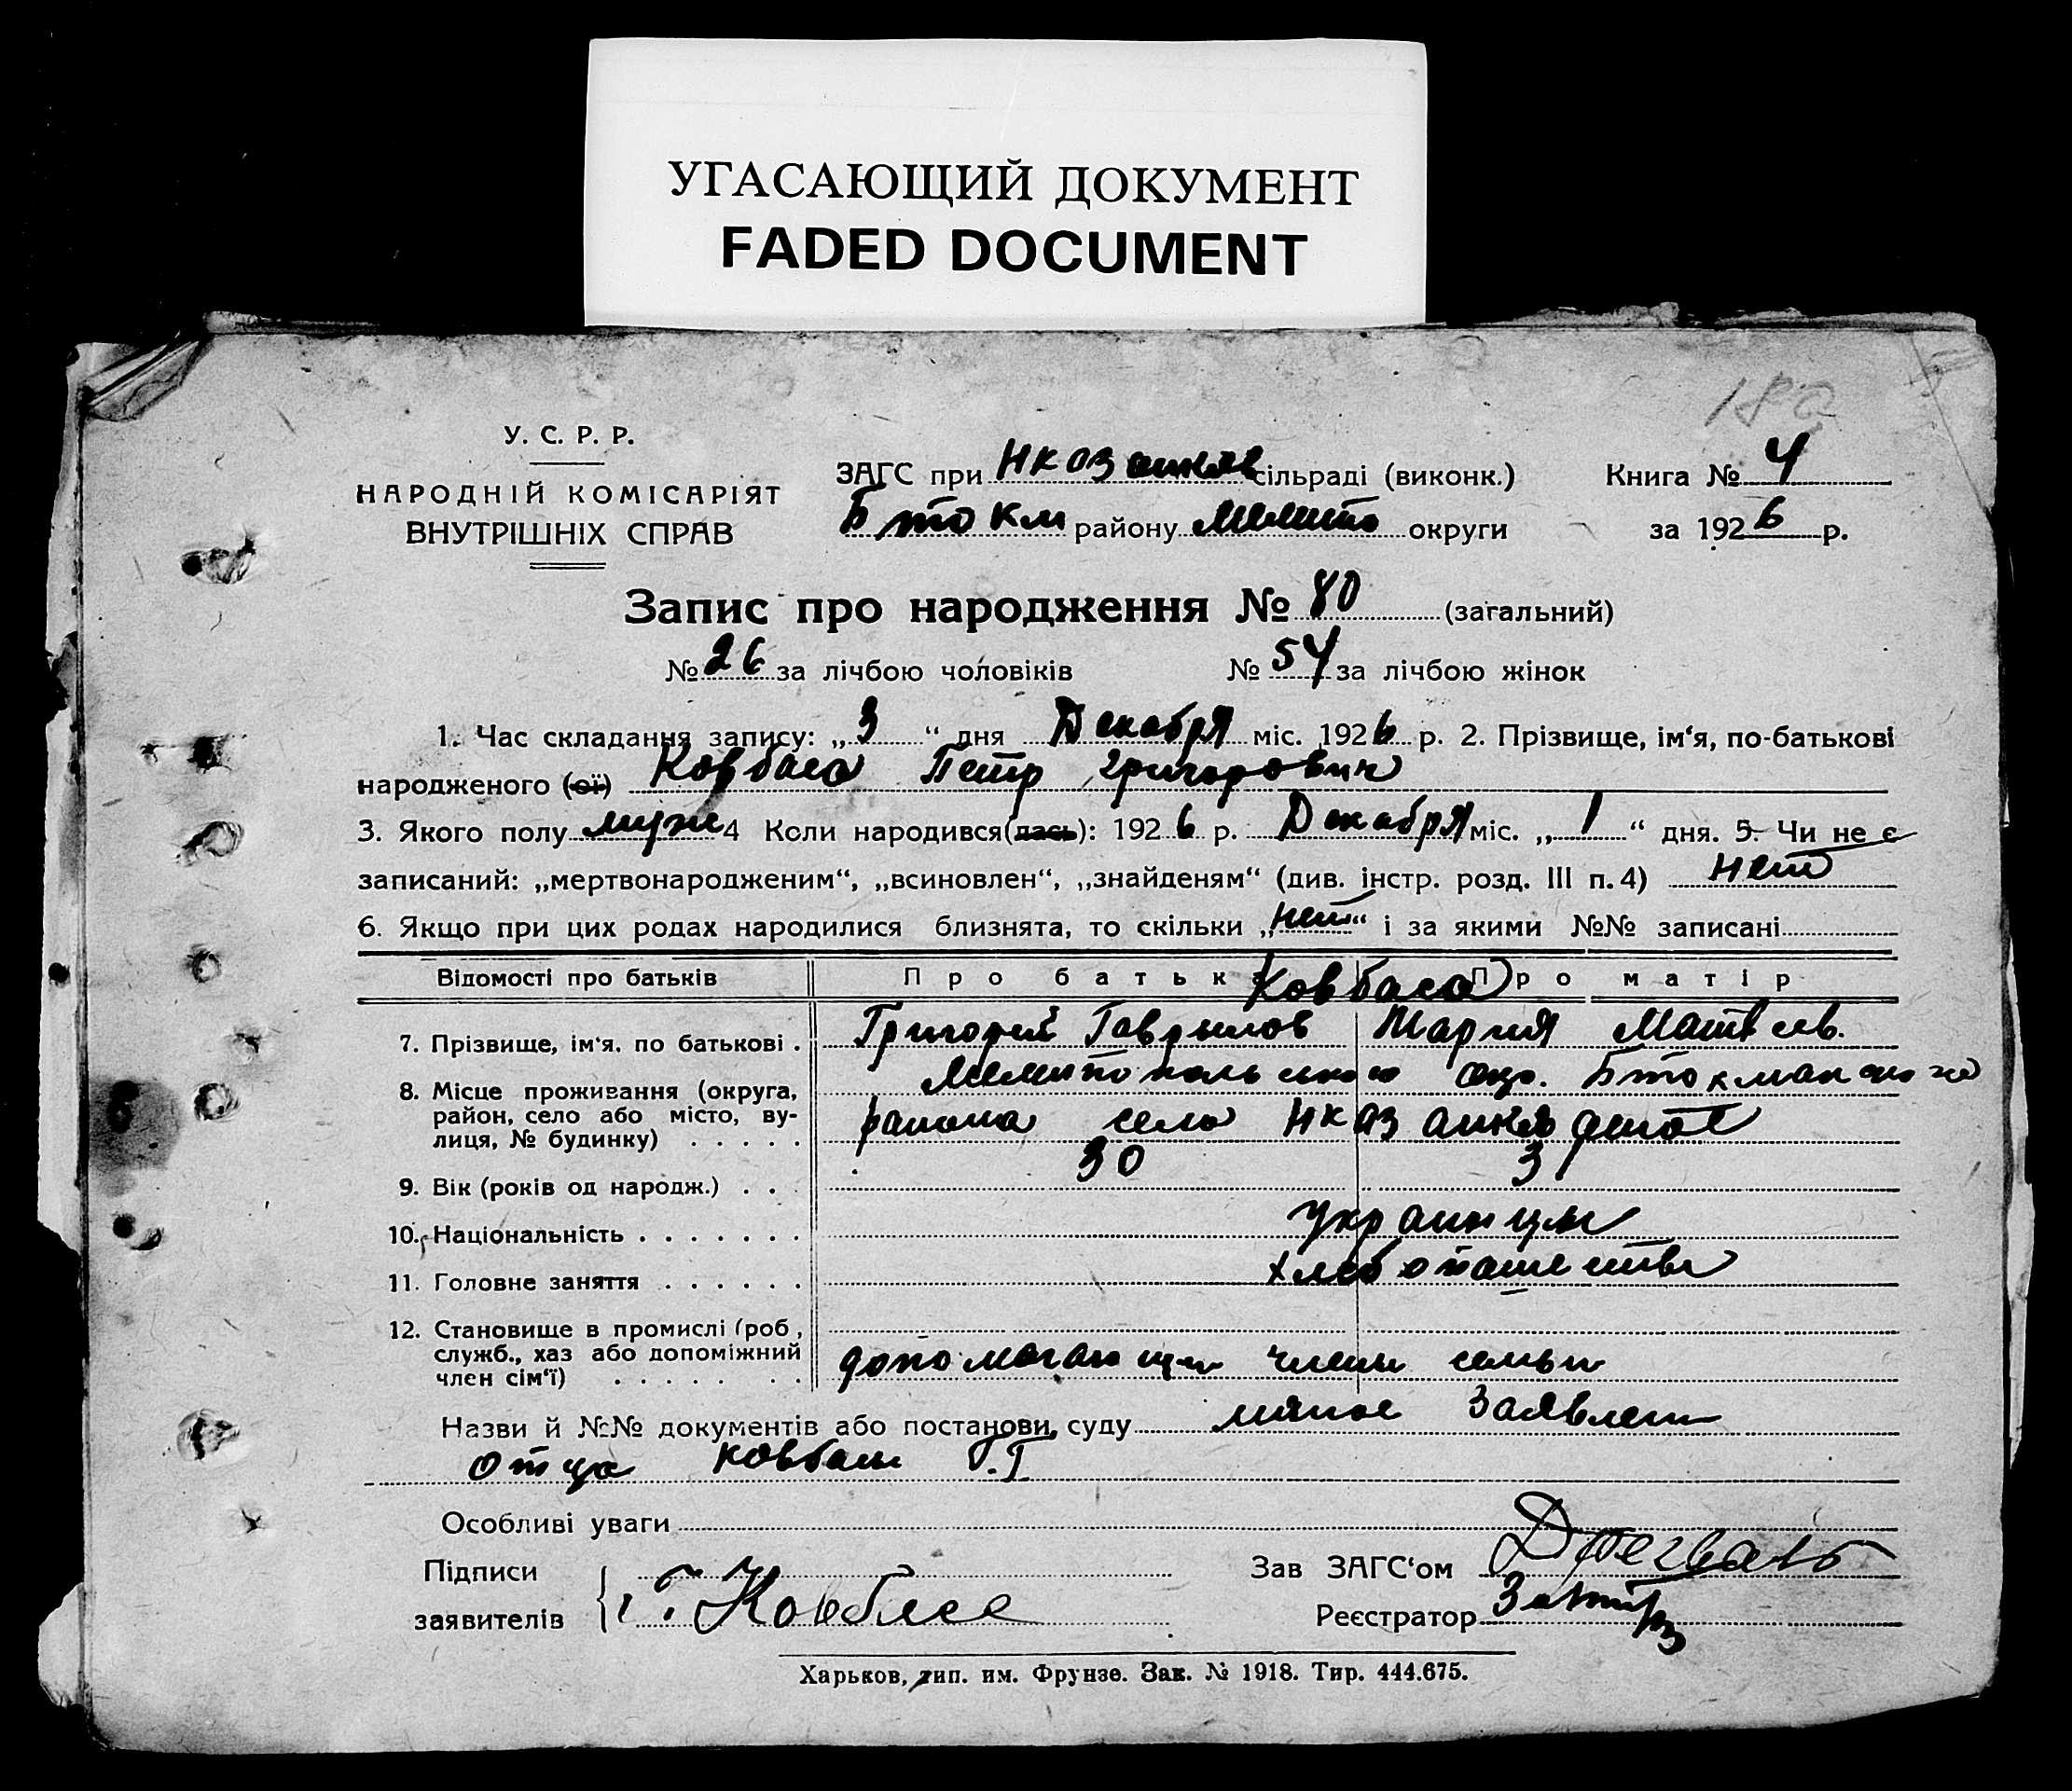 УГАСАЮЩИЙ ДОКУМЕНТ
FADED DOCUMENT
У. С. Р. Р.
НАРОДНІЙ КОМІСАРІЯТ
ВНУТРІШНІХ СПРАВ
ЗАГС при сільраді (виконк.)
Бток км району Мелито округи
Книга № 4
за 1926 р.
Запис про народження № 80 (загальний)
№ 26 за лічбою чоловіків № 54 за лічбою жінок
1. Час складання запису: „3“ дня Декабря міс. 1926 р. 2. Прізвище, ім‘я, по-батькові
народженого (ої) Ковбаса Петр Григорович
3. Якого полу муж 4 Коли народився(лась): 1926 р. Декабря міс. „1“ дня. 5. Чи не є
записаний: „мертвонародженим“, „всиновлен“, „знайденям“ (див. інстр. розд. III п. 4) нет
6. Якщо при цих родах народилися близнята, то скільки „нет“ і за якими №№ записані
Відомості про батьків Про батьк Ковбаса Про матір
7. Прізвище, ім‘я, по батькові . Григорий Гаврилов Мария Матвеев.
8. Місце проживання (округа, район, село або місто, вулиця, № будинку) Мелитопольського окр.
района село
9. Вік (років од народж.) 30 31
10. Національність Украинцы
11. Головне заняття хлебопашество
12. Становище в промислі (роб, служб., хаз або допоміжний член сім‘ї) допомагающи члены семьи
Назви й №№ документів або постанови суду заявлен
отца Ковбаси Г.Г
Особливі уваги
Підписи
заявителів Г. Ковбаса
Зав ЗАГС‘ом
Реєстратор
Харьков, тип. им. Фрунзе. Зак. № 1918. Тир. 444.675.